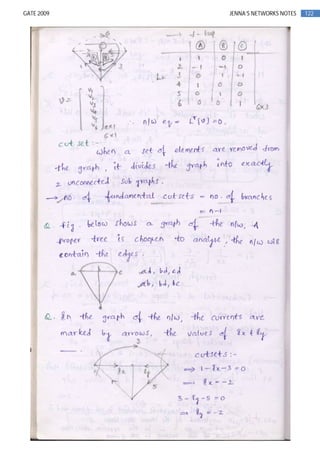 GATE 2009 JENNA'S NETWORKS NOTES 122
A B C
1 1 0 1
2 -1 -1 0
3 0 1 -1
4 1 0 0
5 0 1 0
6 0 0 1
6x3
6x1
cut set :-
when a set of elements are removed from
the graph, it divides the graph into exactly
2 unconnected sub graphs.
→ no of fundamental cutsets = no. of branches
= n-1
Q. fig. below shows a graph of the n/w, A
proper tree is choosen to analyse, the n/w will
contain the edges:
a c ad, bd, cd
ab, bd, bc
Q. In the graph of the n/w, the currents are
marked by arrows, the values of ix & iy.
3
cutsets :-
⇒ 1-ix-3=0
ix = -2
3-iy-5=0
iy = -2